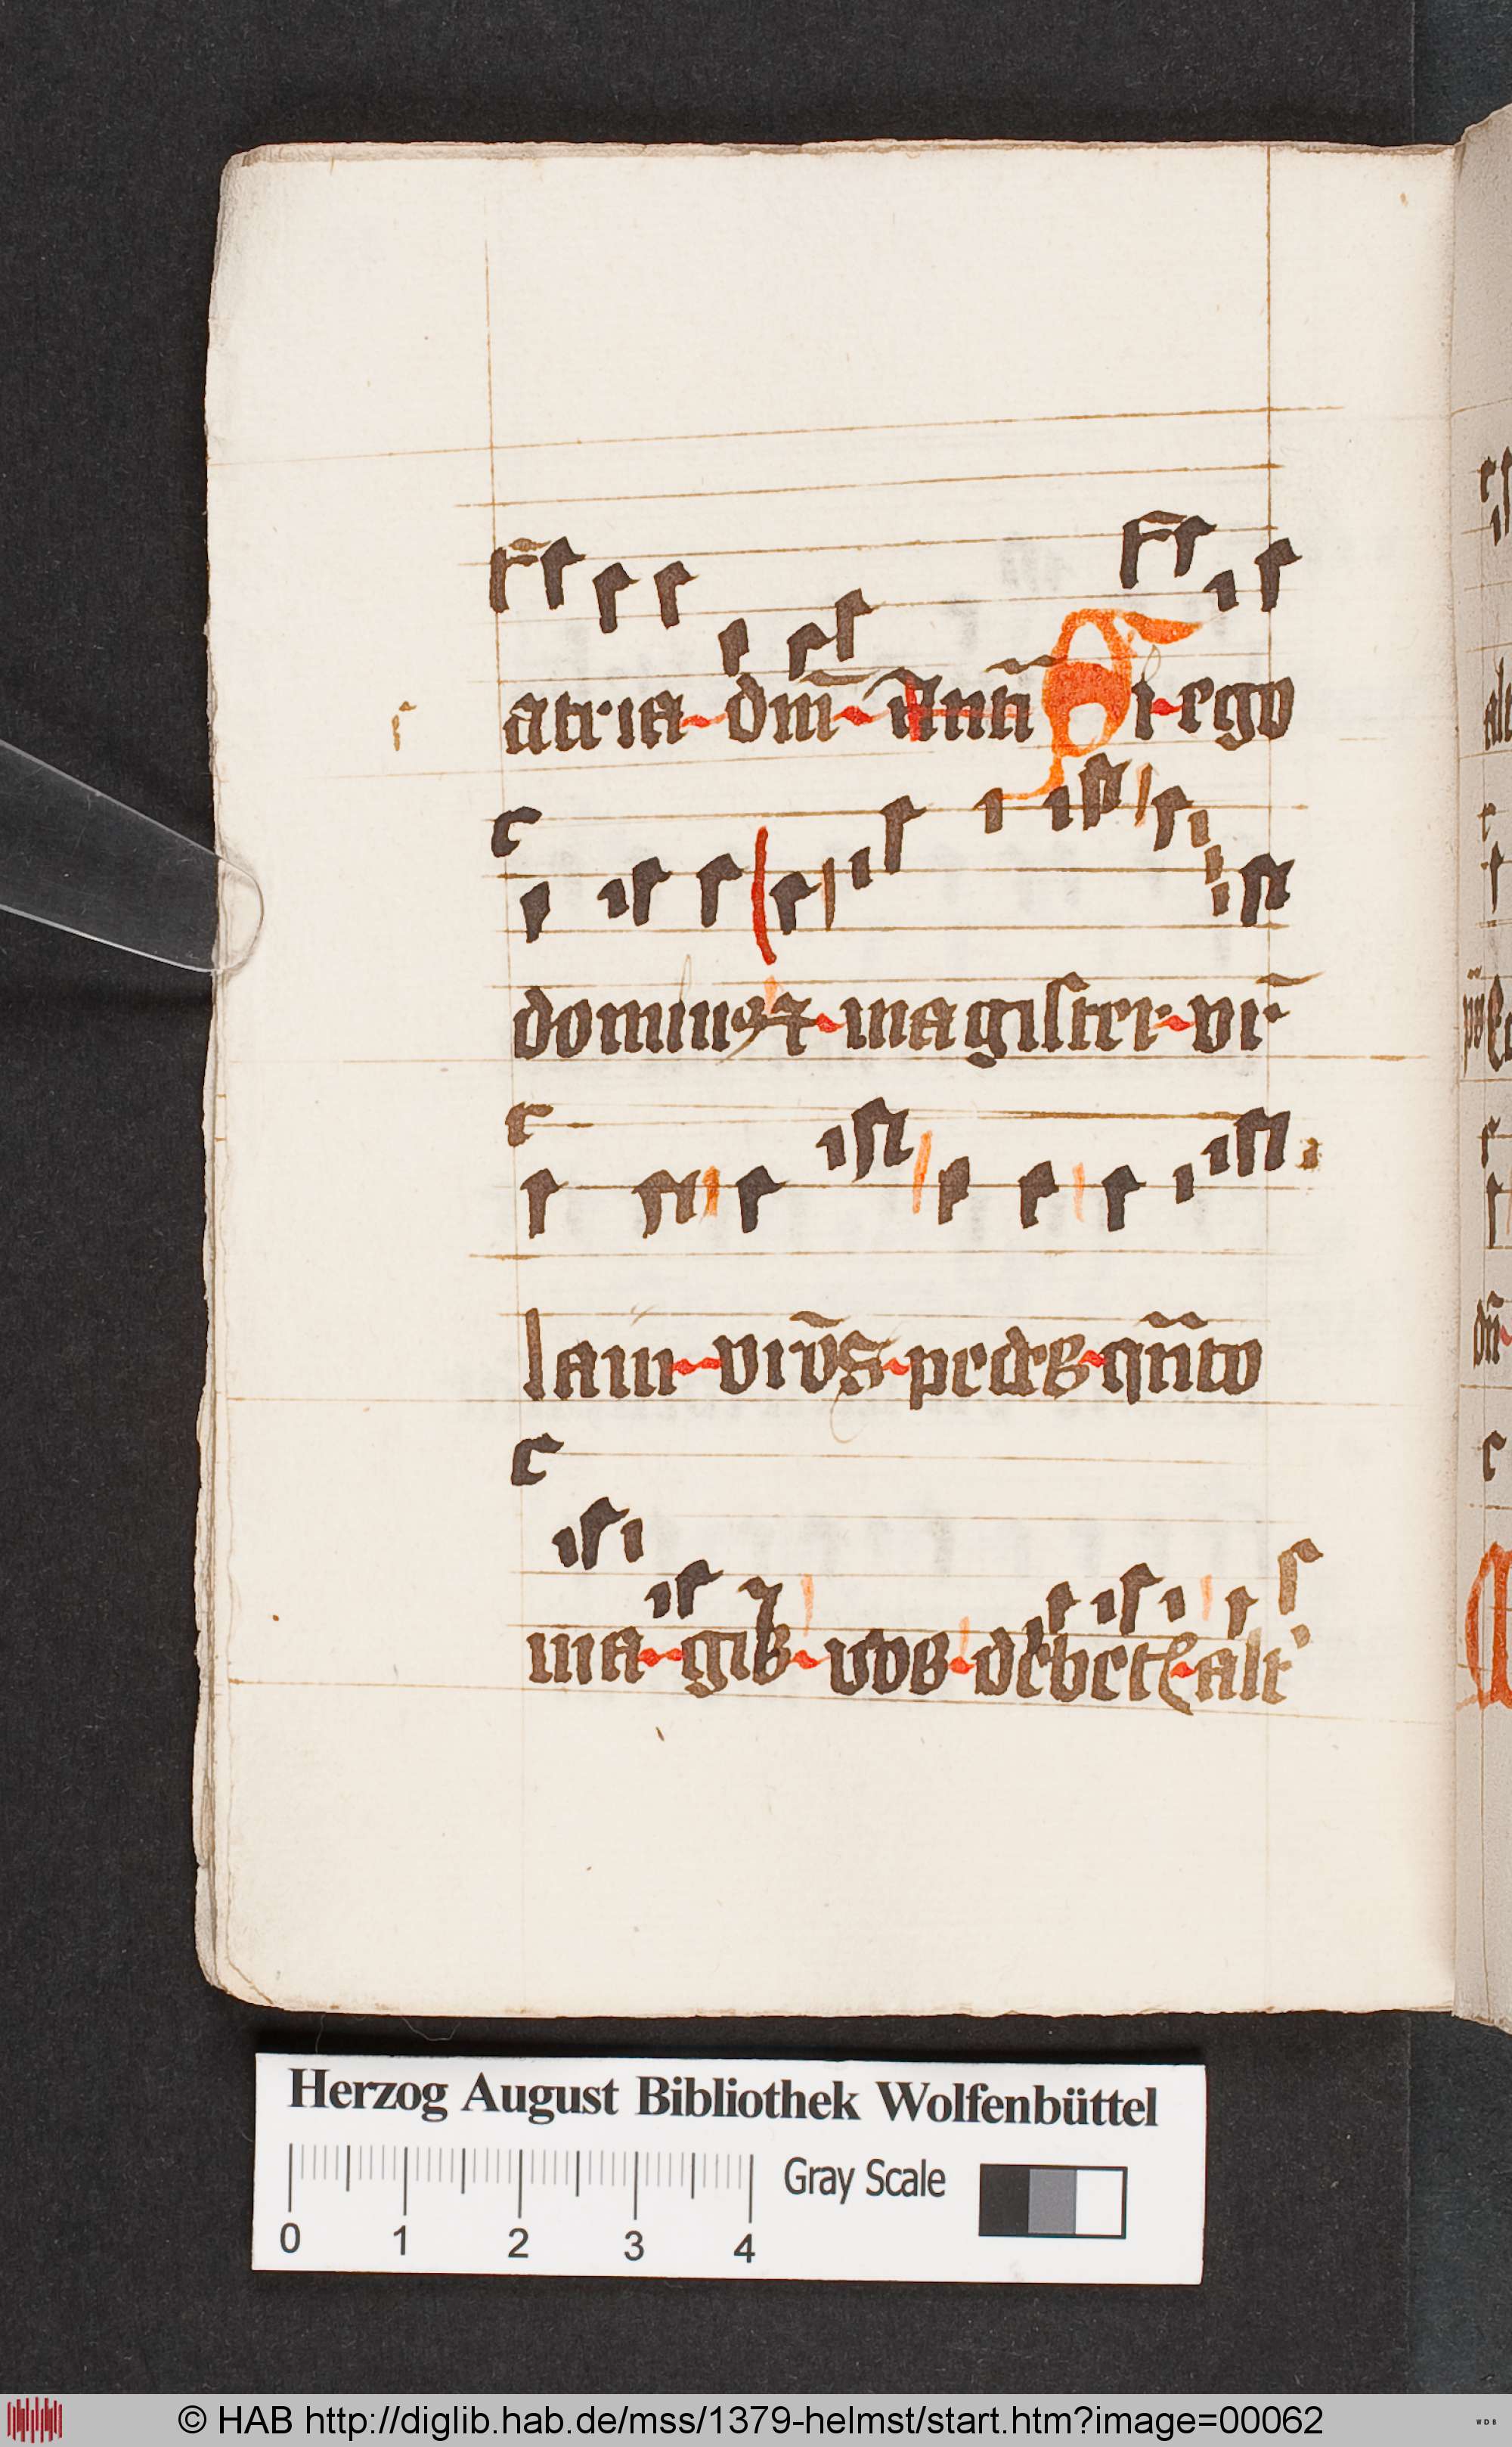 atria dm̄i Antī Si ego
dominꝰ ⁊ magister vr̄
laui vr̄os pedes qn̄to
magis vos debetꝭ alt'
Herzog August Bibliothek Wolfenbüttel
0 1 2 3 4
Gray Scale
© HAB http://diglib.hab.de/mss/1379-helmst/start.htm?image=00062